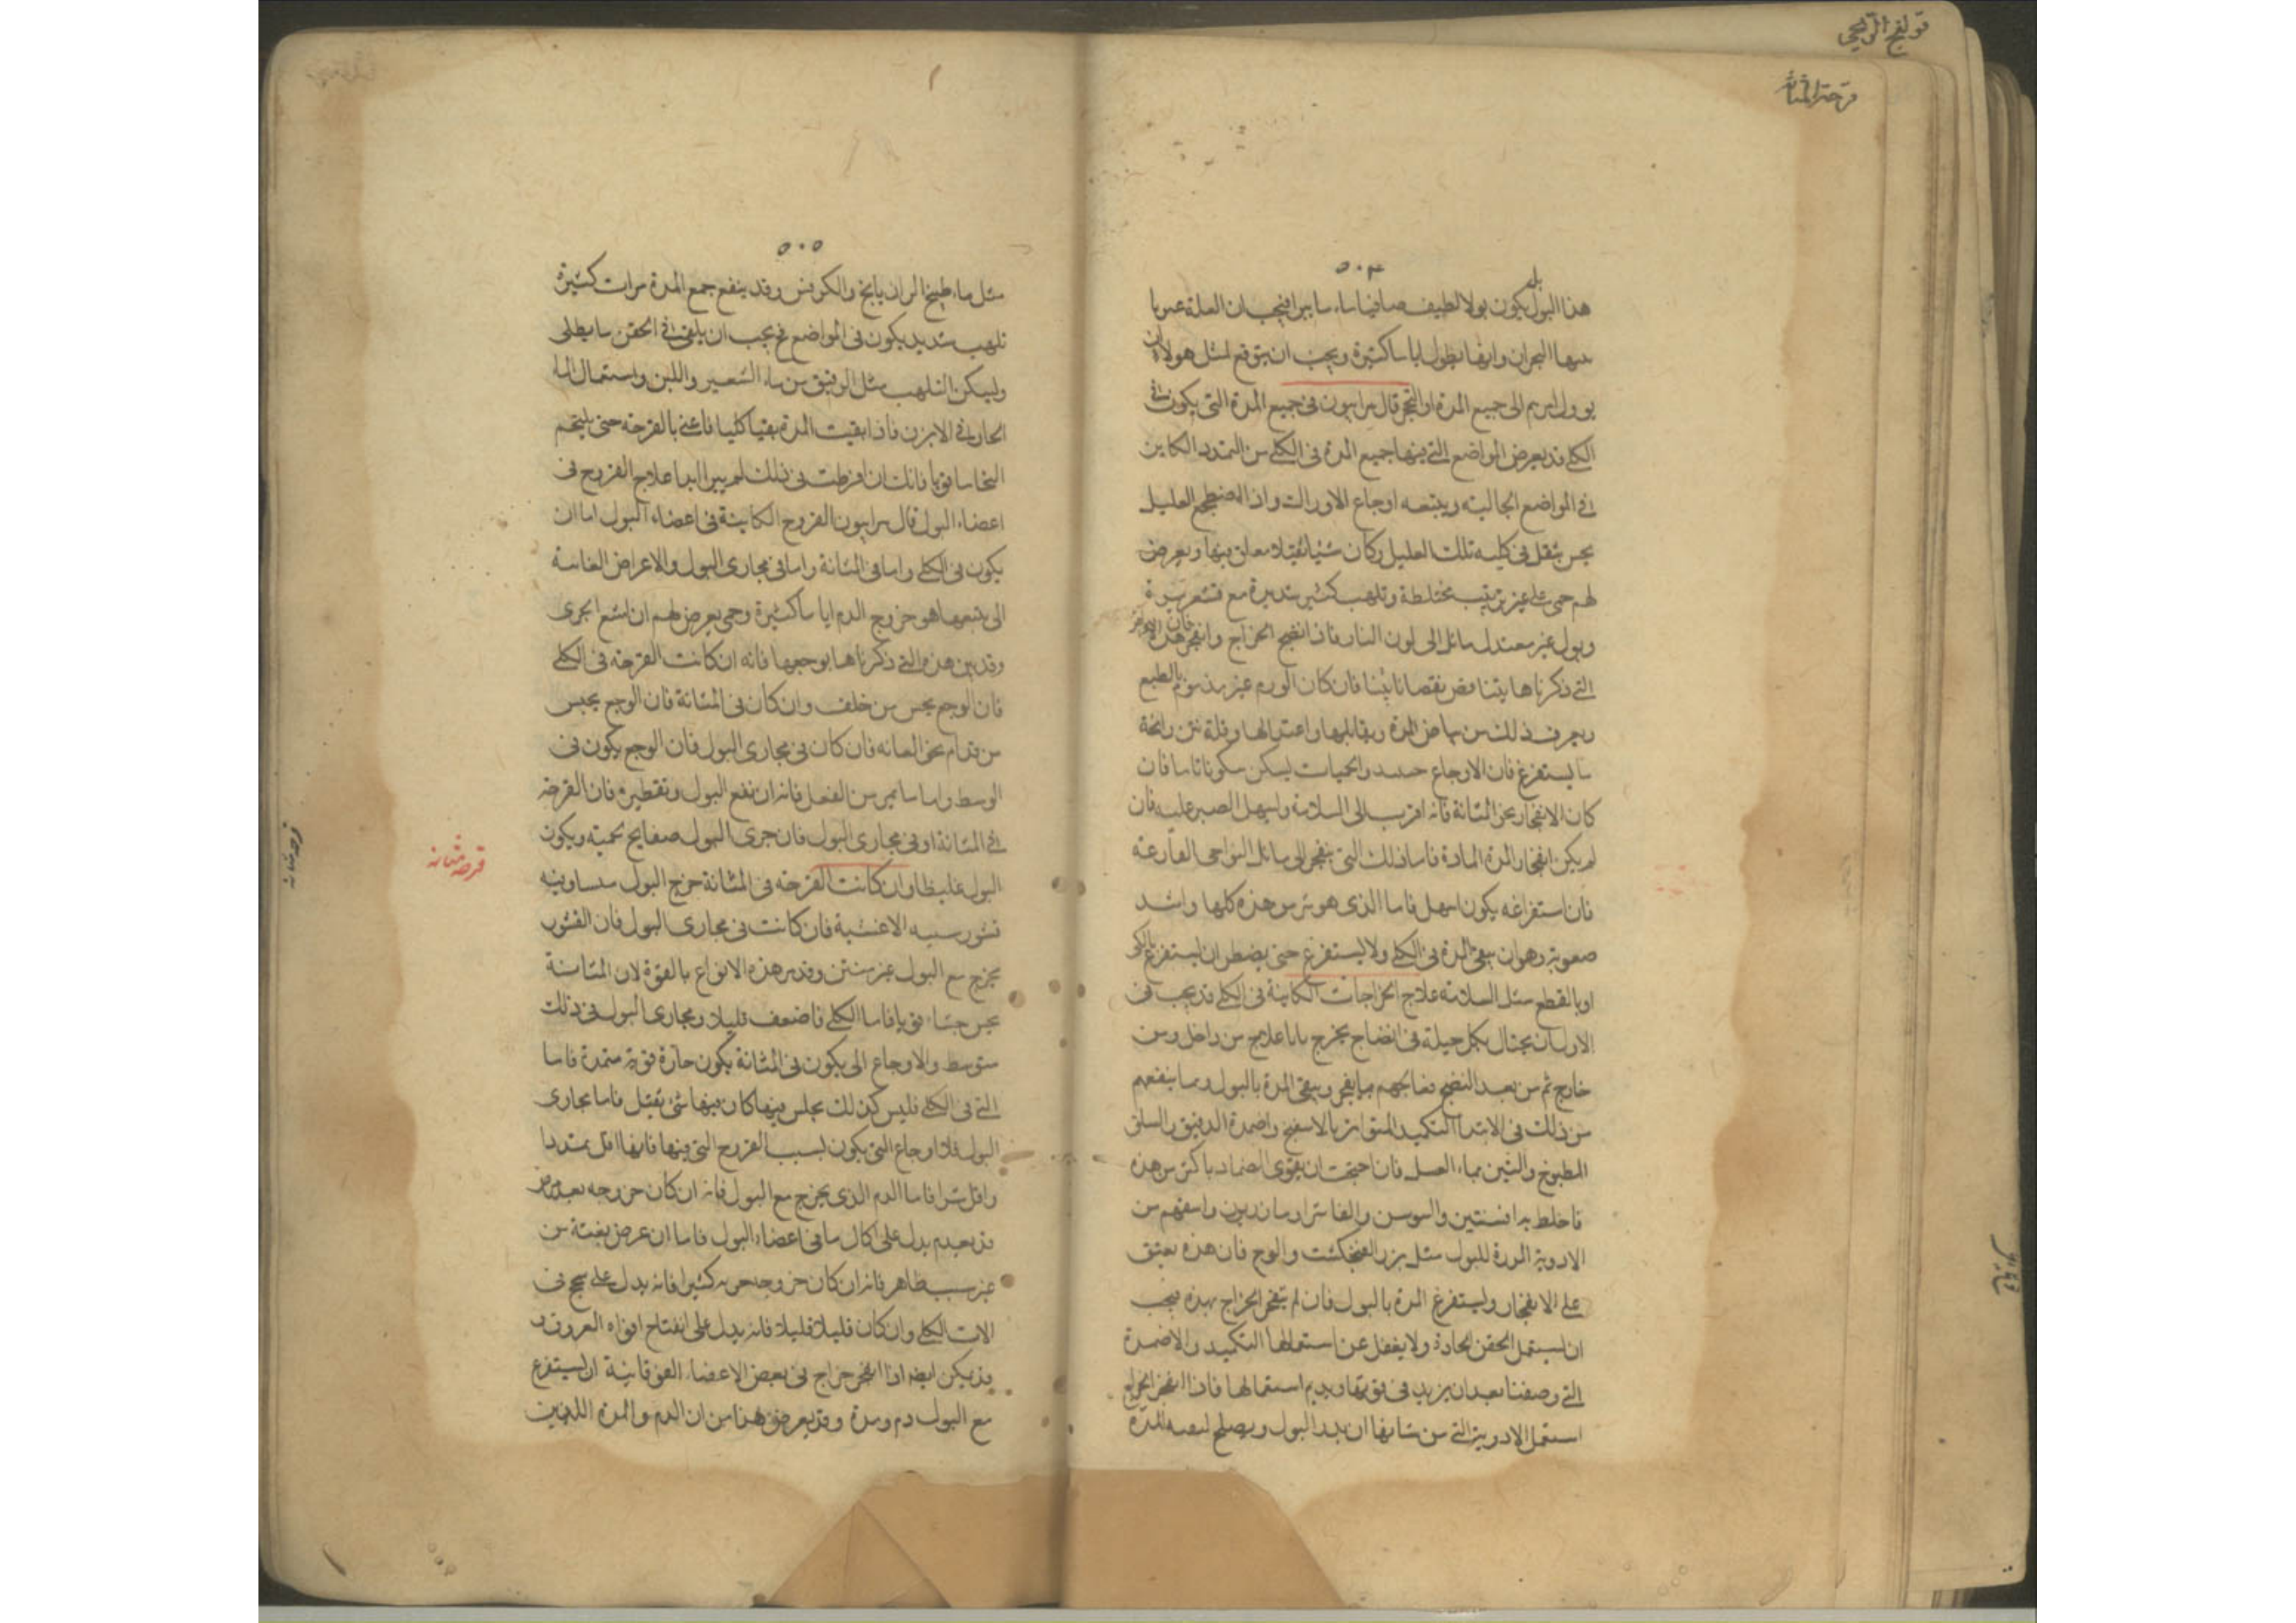 قولنج الريحي
قرحة المثانة
٥٠٤
هذا البول يكون بولا لطيف صافيا ماء
منها البحران وانها يطول اياما كثيرة ويجب ان يتوقع لمثل هولاء
الى جميع المدة او التفجر قال سرابيون في جميع المدة التى يكون في
الكلى قد يعرض المواضع التي فيها جميع المدة في الكلى من التمدد الكاين
في المواضع الجالبته ويتبعه اوجاع الاوراك واذا اضطجع العليل
يحس بثقل في كليه تلك العليل وكان شيئا ثقيلا معلق فيها ويعرض
لهم حمى على غير ترتيب مختلطة وتلهب كثير شديدة مع قشعريرة
وبول غير معتدل مائل الى لون النار فاذا انفجر الخراج وانفجر هذه
التي ذكرناها يتناقص نقصانا بينا فان كان الورم غير مذموم بالطبع
ويعرف ذلك من بياض المدة واعتدالها وقلة نتن رائحة
ما يستفرغ فان الاوجاع والحميات يسكن سكونا تاما فان
كان الانفجار نحو المثانة فانه اقرب الى السلامة واسهل الصبر عليه فان
لم يكن انفجار المدة المادة فاما ذلك التي ينفجر الى مائل النواحى الفارغة
فان استفراغه يكون اسهل فاما الذى هو شر من هذه كلها واشد
صعوبة وهو ان يبقى المدة في الكلى ولا يستفرغ حتى يضطر ان يستفرغ بالكى
او بالقطع مثل السلامة علاج الخراجات الكاينة في الكلى قد يجب في
الاورام ان يحتال بكل حيلة في انضاج يخرج من داخل ومن
خارج ثم من بعد النضج بما يفجر وينقى المدة بالبول ومما ينفعهم
من ذلك في الابتدا التكميد المتواتر بالاسفنج واضمدة الدقيق
المطبوخ والتين بماء العسل فان احتجت ان يقوى الضماد باكثر من هذه
فاخلط به افسنتين والسوسن واسقهم من
الادوية المدرة للبول مثل بزر الفنجنكشت والوج فان هذه يعين
على الانفجار ويستفرغ المدة بالبول فان لم ينفجر الخراج بهذه فيجب
ان يستعمل الحقن الحادة ولا يغفل عن استعمالها التكميد والاضمدة
التي وصفنا بعد ان يزيد في قوتها ويديم استعمالها فاذا انفجر الخراج
استعمل الادوية التي من شانها ان يدر البول ويصلح المدة
٥٠٥
مثل ماء طبيخ الرازيانج والكرفس وقد ينفع جمع المدة مرات كثيرة
تلهب شديد يكون في المواضع فح يجب ان يلقى في الحقن ما يطفى
وليسكن التلهب مثل الدقيق من ماء الشعير واللبن واستعمال الماء
الحار في الابزن فاذا نقيت المدة نقيا كليا فاعن بالقرحة حتى يلتحم
التحاما قويا فانك ان افرطت في ذلك لم يبرا ابدا علاج القروح في
اعضاء البول قال سرابيون القروح الكاينة في اعضاء البول اما ان
يكون في الكلى واما في المثانة واما في مجارى البول والاعراض العامة
التى يتبعها هو خروج الدم اياما كثيرة وحمى يعرض لهم
وقد بين هذه التي ذكرناها بوجعها فانه ان كانت القرحة في الكلى
فان الوجع يحس من خلف وان كان في المثانة فان الوجع يحس
من قدام نحو العانة فان كان في مجارى البول فان الوجع يكون في
الوسط فان القرحة
في المثانة او في مجارى البول فان جرى البول صفايح لحمية ويكون
البول غليظا وان كانت القرحة في المثانة خرج البول
قشور شبيه الاغشية فان كانت في مجارى البول فان القشور
يخرج مع البول غير منتن وقد هذه الانواع بالقوة لان المثانة
يحس حسا قويا فاما الكلى فاضعف قليلا ومجارى البول في ذلك
متوسط والاوجاع التى يكون في المثانة يكون حادة قوية ممتدة فاما
التي في الكلى فليس كذلك كان فيها شئ ثقيل فاما مجارى
البول فلا اوجاع التى يكون بسبب القروح التى فيها فانها اقل تمددا
واقل شرا فاما الدم الذى يخرج مع البول فانه ان كان خروجه بعد
يدل على اكال ما في اعضاء البول فاما ان عرض بغتة من
غير سبب ظاهر فانه ان كان خروجه كثيرا فانه يدل على في
الات الكلى وان كان قليلا قليلا فانه يدل على انفتاح افواه العروق و
قد يمكن ايضا اذا انفجر خراج في بعض الاعضاء الفوقانية ان يستفرغ
مع البول دم ومدة وقد يعرض هذا من ان الدم والمدة اللذين
قرحة مثانه
قرحه مثانه